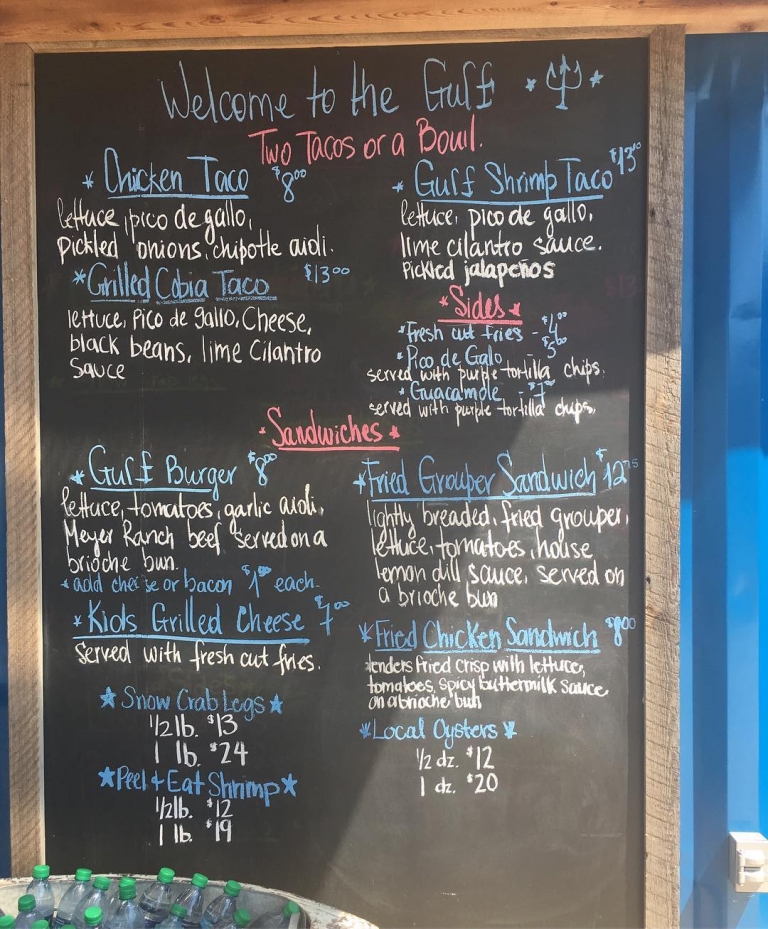 Welcome to the Gulf
Two Tacos or a Bowl.
* Chicken Taco $8.00
lettuce, pico de gallo,
pickled onions, chipotle aioli.
* Grilled Cobia Taco $13.00
lettuce, pico de gallo, Cheese,
black beans, lime cilantro
sauce
* Gulf Shrimp Taco $13.00
lettuce, pico de gallo,
lime cilantro sauce.
Pickled jalapeños
* Sides *
* Fresh cut fries - $4.00
* Pico de Galo - $5.00
served with purple tortilla chips.
* Guacamole - $7.00
served with purple tortilla chips.
* Sandwiches *
* Gulf Burger $8.00
lettuce, tomatoes, garlic aioli,
Meyer Ranch beef served on a
brioche bun.
* add cheese or bacon $1.00 each.
* Kids Grilled Cheese $7.00
Served with fresh cut fries.
* Fried Grouper Sandwich $12.75
lightly breaded, fried grouper,
lettuce, tomatoes, house
lemon dill sauce, served on
a brioche bun
* Fried Chicken Sandwich $8.00
tenders fried crisp with lettuce,
tomatoes, spicy buttermilk sauce
on a brioche bun
* Snow Crab Legs *
1/2 lb. $13
1 lb. $24
* Peel + Eat Shrimp *
1/2 lb. $12
1 lb. $19
* Local Oysters *
1/2 dz. $12
1 dz. $20